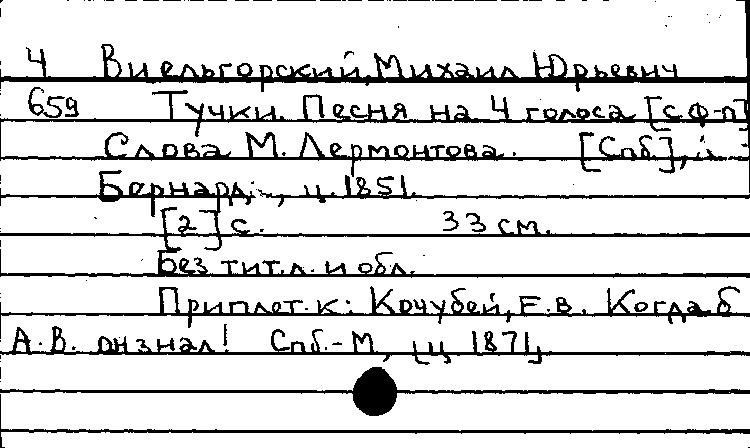 4 Виельгорский, Михаил Юрьевич
659 Тучки. Песня на 4 голоса [с ф-п]
Слова М. Лермонтова. [Спб],
Бернард, ц. 1851.
[2] с. 33 см.
Без тит. л. и обл.
Приплет. к: Кочубей, Е. В. Когда б
А.В. он знал! Спб.-М, [ц. 1871]